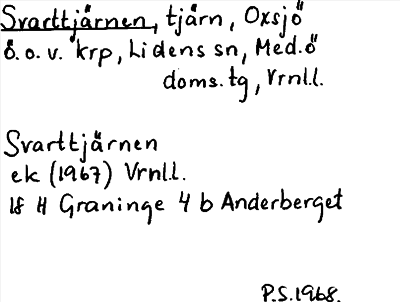 Svarttjärnen, tjärn, Oxsjö
ö. o. v. krp, Lidens sn, Med. ö
doms. tg, Vrnl.l.
Svarttjärnen
ek (1967) Vrnl.l.
18 H Graninge 4 b Anderberget
P.S. 1968.